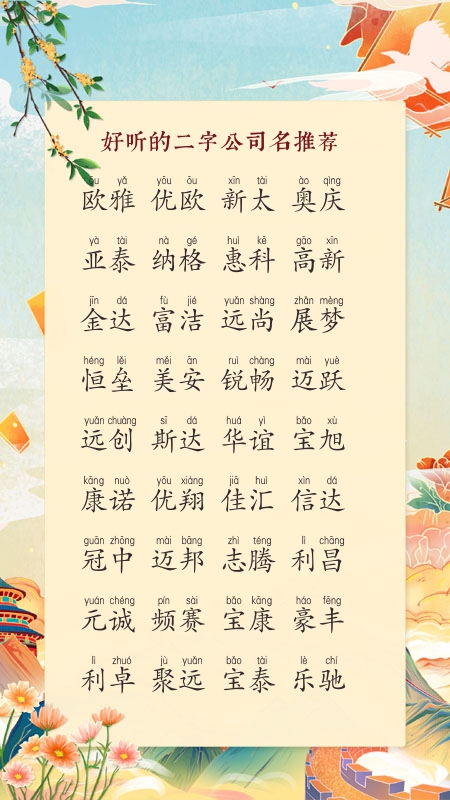 好听的二字公司名推荐
ōu yǎ yōu ōu xīn tài ào qìng
欧雅 优欧 新太 奥庆
yà tài nà gé huì kē gāo xīn
亚泰 纳格 惠科 高新
jīn dá fù jié yuǎn shàng zhǎn mèng
金达 富洁 远尚 展梦
héng lěi měi ān ruì chàng mài yuè
恒垒 美安 锐畅 迈跃
yuǎn chuàng sī dá huá yì bǎo xù
远创 斯达 华谊 宝旭
kāng nuò yōu xiáng jiā huì xìn dá
康诺 优翔 佳汇 信达
guān zhōng mài bāng zhì téng lì chāng
冠中 迈邦 志腾 利昌
yuán chéng pín sài bǎo kāng háo fēng
元诚 频赛 宝康 豪丰
lì zhuó jù yuǎn bǎo tài lè chí
利卓 聚远 宝泰 乐驰